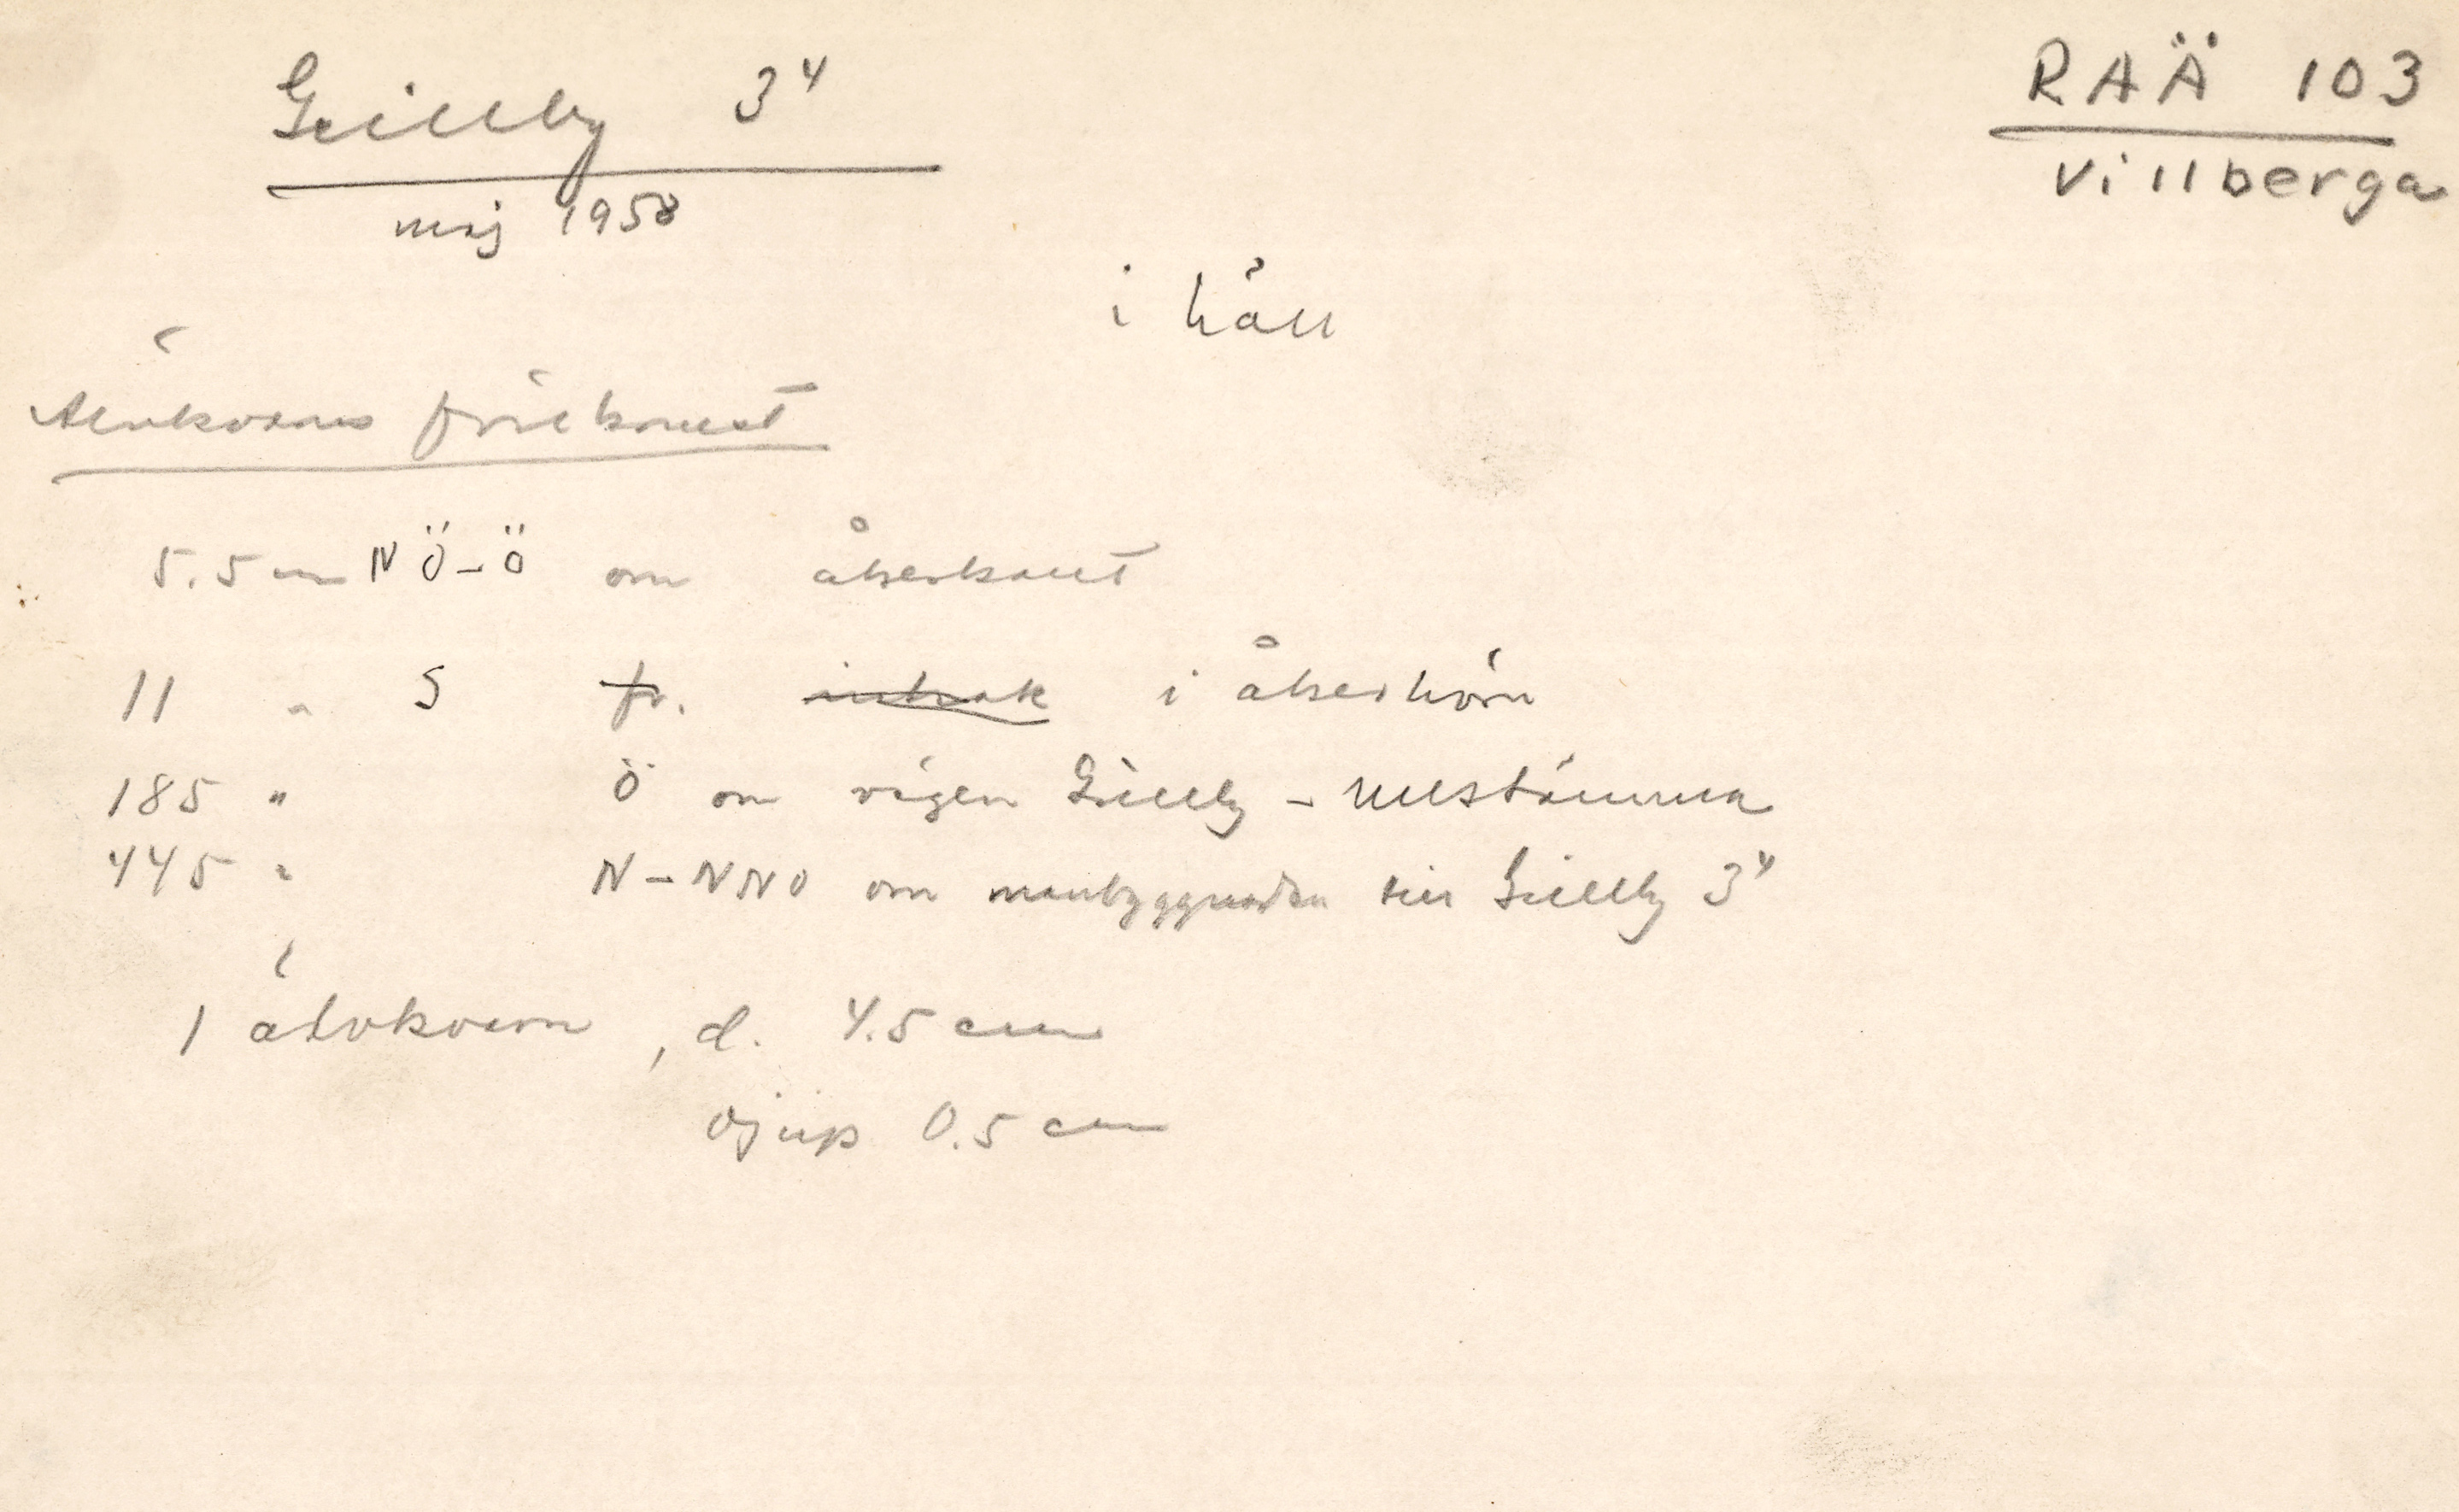 Gillby 3⁴
RAÄ 103
Villberga
maj 1958
i häll
Älvkvarnsförekomst
5.5 m NÖ-Ö om åkerkant
11 " S fr. inhak i åkerhörn
185 " Ö om vägen Gillby - Ullstämma
445 " N-NNO om manbyggnaden till Gillby 3⁴
1 älvkvarn, d. 4.5 cm
djup 0.5 cm